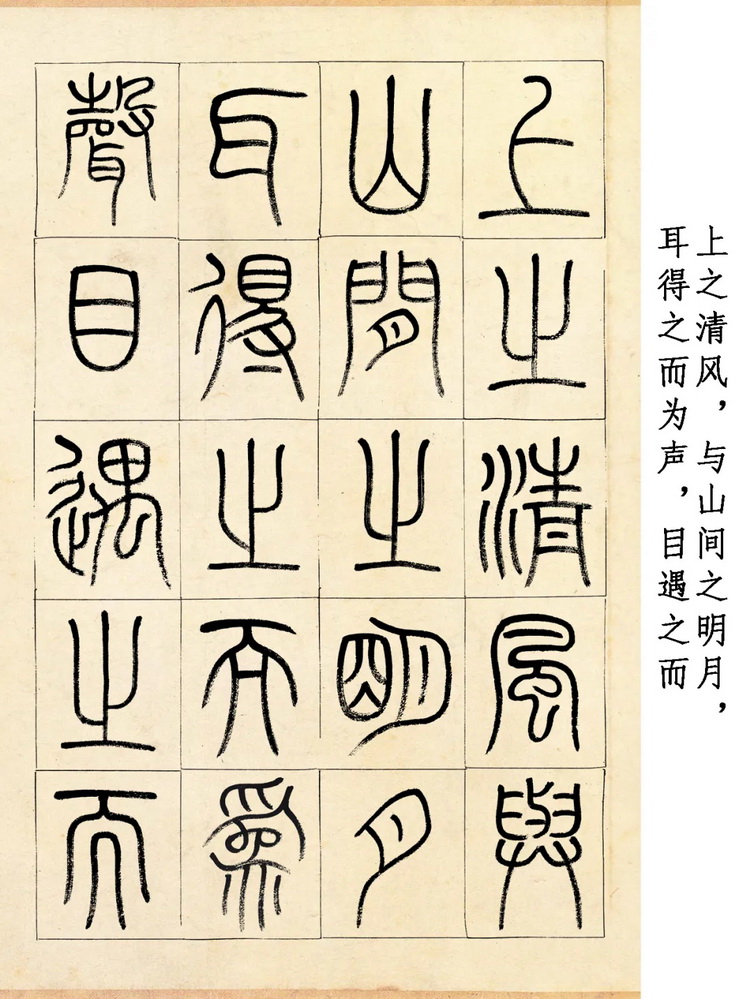 上之清風與
山間之明月
耳得之而爲
聲目遇之而
上之清风，与山间之明月，
耳得之而为声，目遇之而